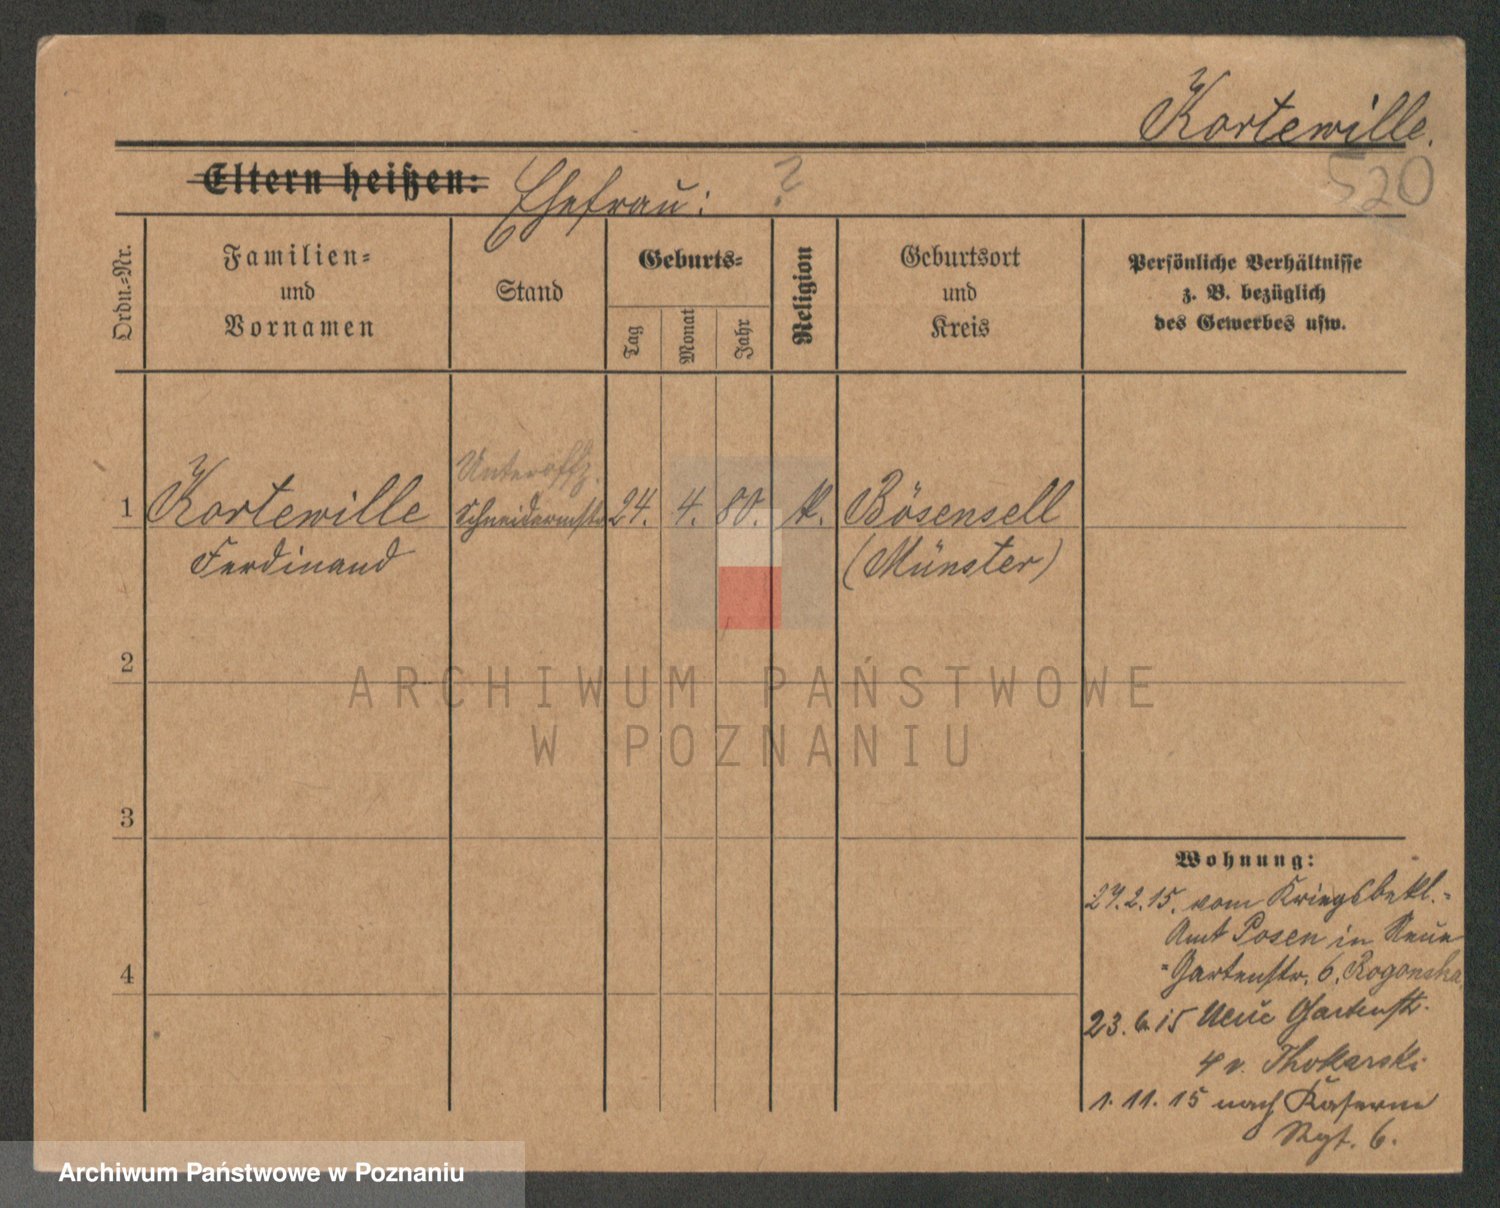 Kortewille.
520
Eltern heißen: Ehefrau: ?
Ordn.-Nr.
Familien-
und
Vornamen
Stand
Geburts-
Tag
Monat
Jahr
Religion
Geburtsort
und
Kreis
Persönliche Verhältnisse
z. B. bezüglich
des Gewerbes usw.
Unteroffz.
1 Kortewille Schneidermstr. 24. 4. 80. k. Bösensell
Ferdinand (Münster)
2
ARCHIWUM PAŃSTWOWE
W POZNANIU
3
Wohnung:
27.2.15. vom Kriegsbekl.-
Amt Posen in Neue
-Gartenstr. 6.
4
23.6.15 Neue Gartenstr.
4 v.
1.11.15 nach Kaserne
Rgt. 6.
Archiwum Państwowe w Poznaniu